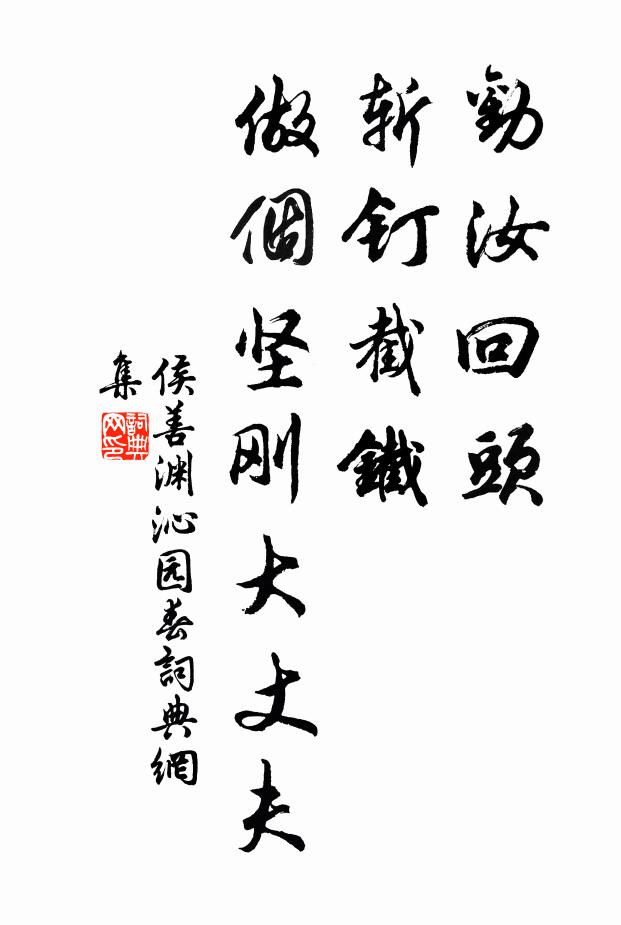 勸汝回頭
斬钉截鐵
做個坚刚大丈夫
侯善渊沁园春詞典網
集
詞典
网印